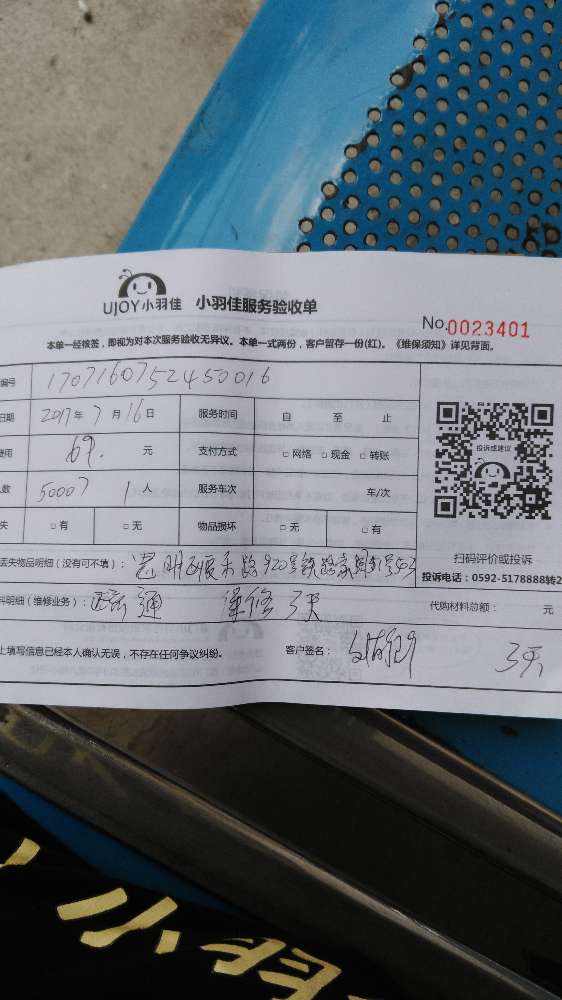 UJOY小羽佳 小羽佳服务验收单
No.0023401
本单一经核签，即视为对本次服务验收无异议。本单一式两份，客户留存一份(红)。《维保须知》详见背面。
编号 1707160752450016
日期 2017年7月16日 服务时间 自 至 止
费用 69. 元 支付方式 □网络 □现金 □转账
人数 50007 1人 服务车次 车/次
失 □有 □无 物品损坏 □无 □有
投诉或建议
扫码评价或投诉
投诉电话：0592-5178888转2
丢失物品明细（没有可不填）： 路920号铁路家
料明细（维修业务）： 通 保修3天 代购材料总额： 元
上填写信息已经本人确认无误，不存在任何争议纠纷。 客户签名： 3天
小羽